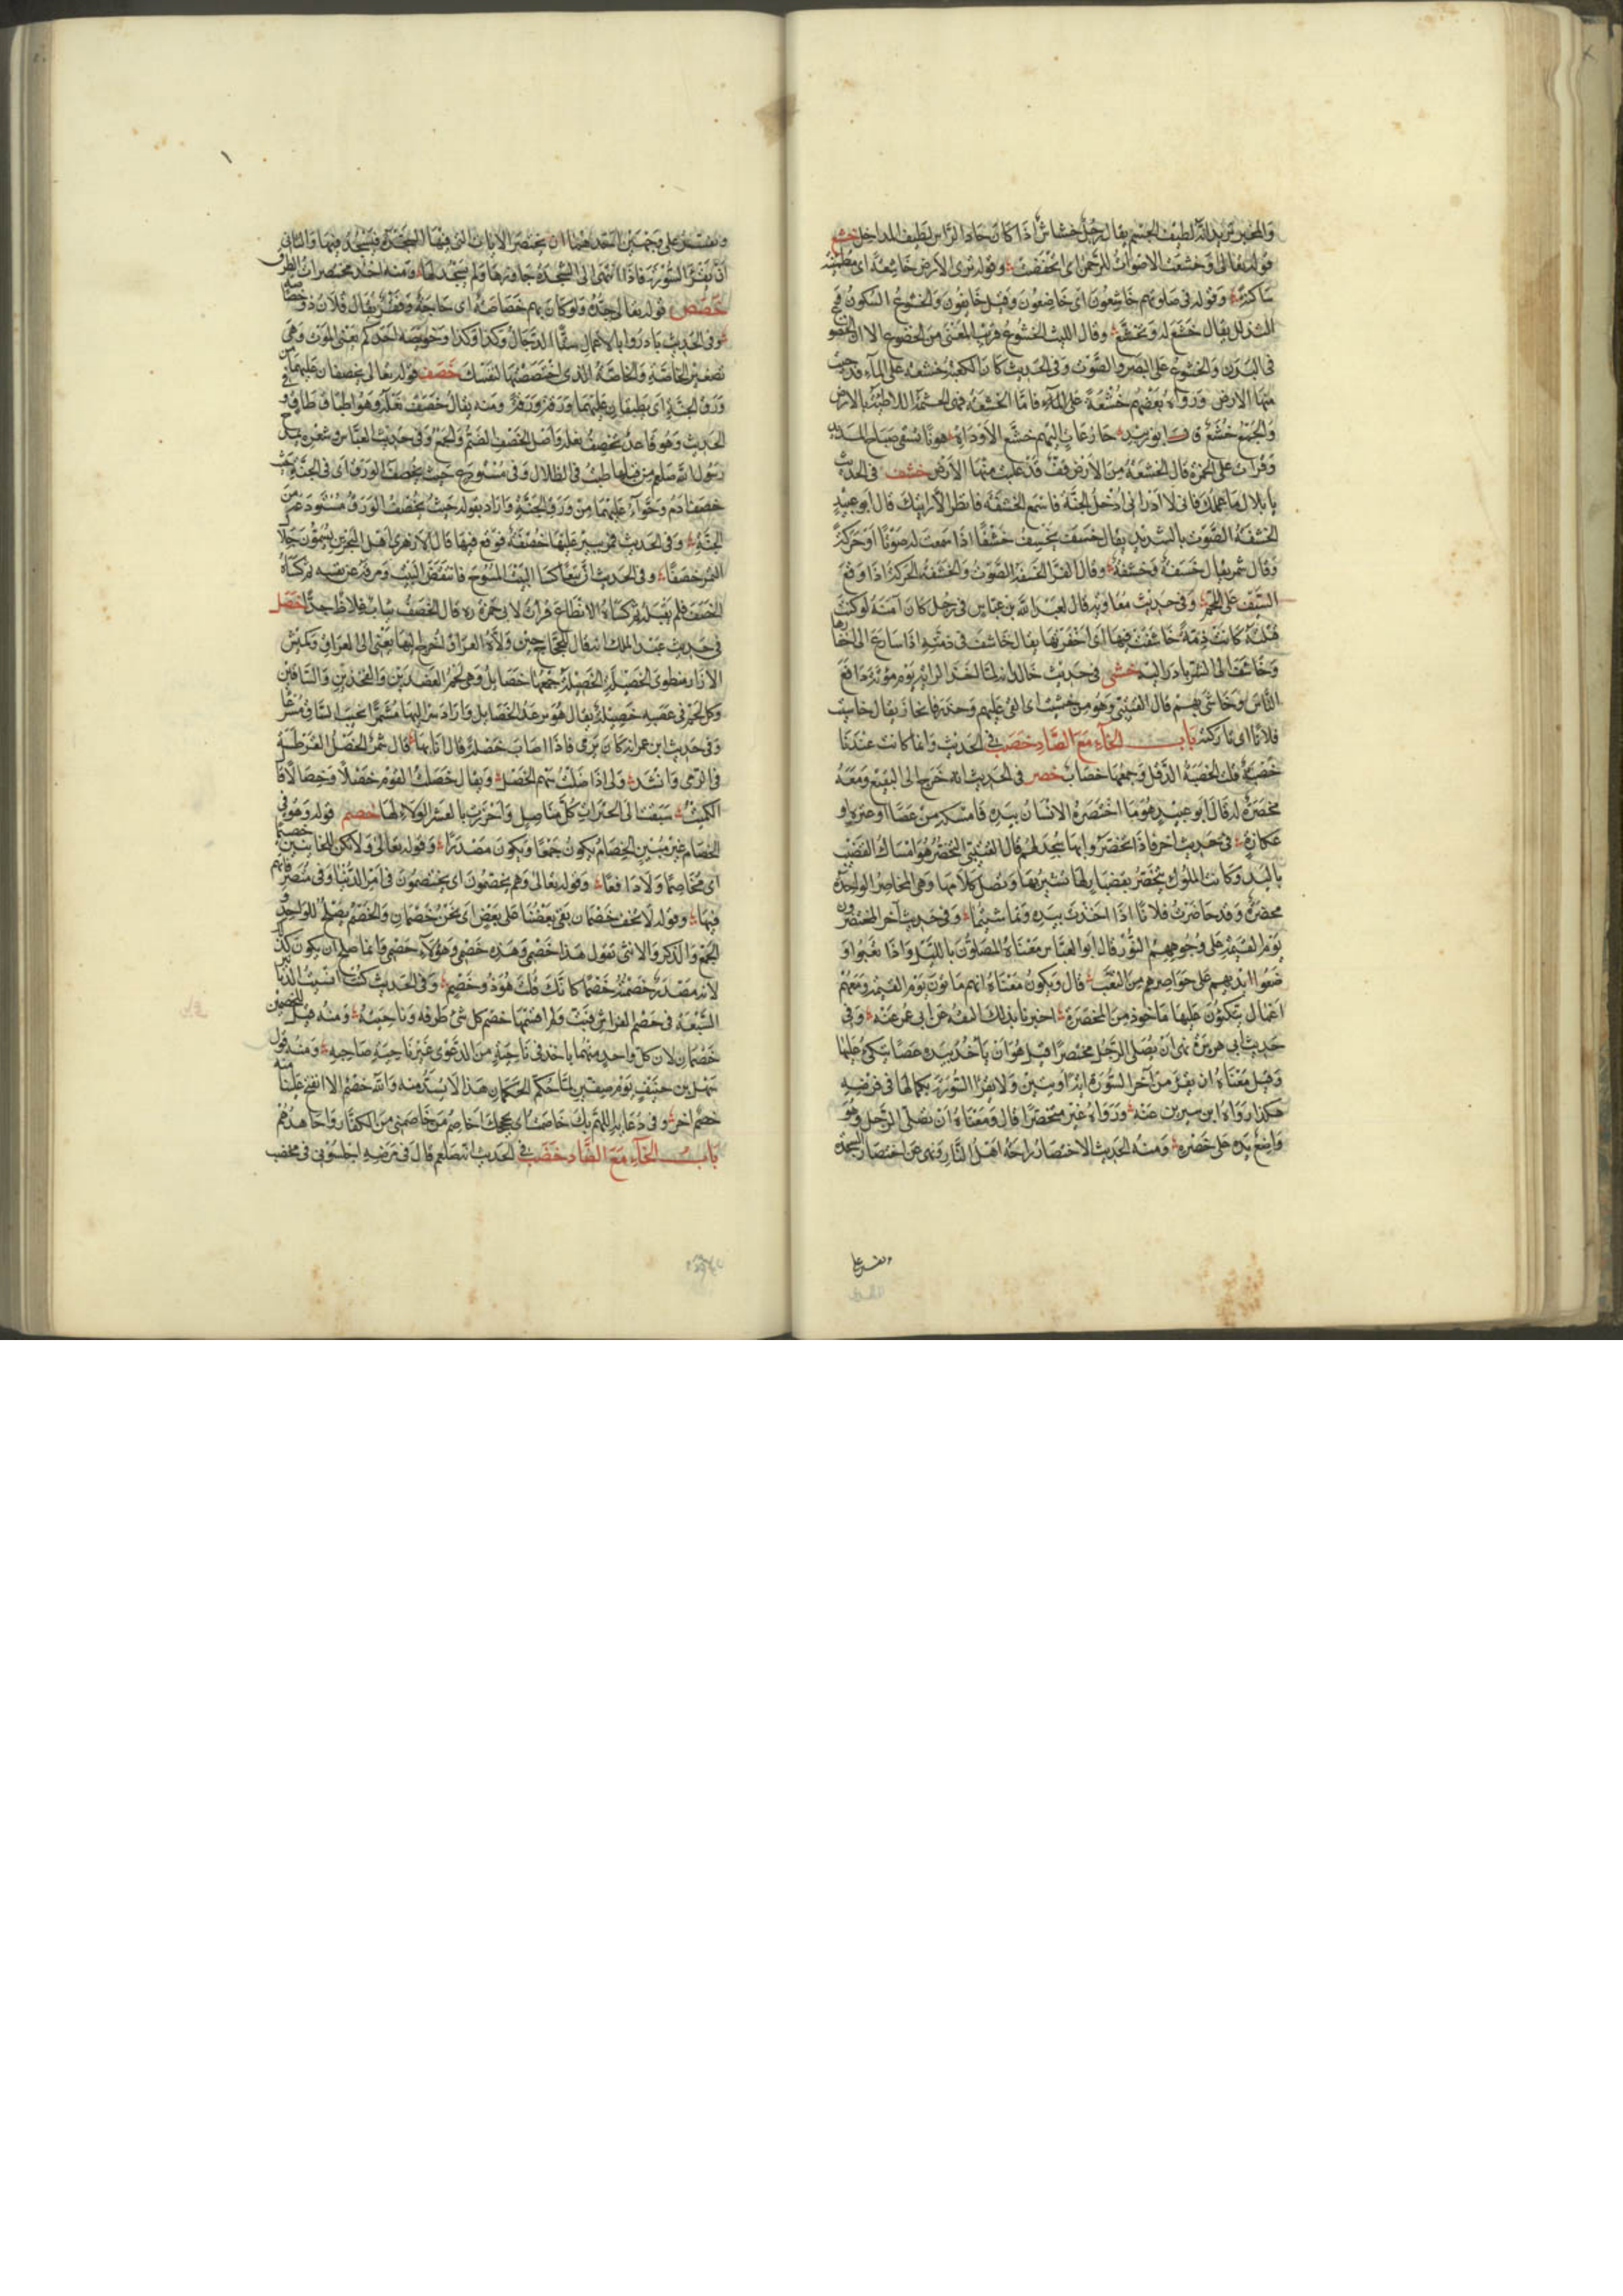 والمخبر تريد انه لطيف الجسم يقال رجل خشاش اذا كان حاد الراس لطيف المداخل خشع
قوله تعالى وخشعت الاصوات للرحمن اى انخفضت وقوله ترى الارض خاشعة اى مطمئنة
ساكنة وقوله فى صلوتهم خاشعون اى خاضعون وقيل خائفون والخشوع السكون
التذلل يقال خشع له وتخشع وقال الليث الخشوع قريب المعنى من الخضوع الا ان الخضوع
فى البدن والخشوع على البصر والصوت وفى الحديث كانت الكعبة خشعة على الماء فدحيت
منها الارض ورواه بعضهم خشفة على الماء فاما الخشعة فهى الجثمة اللاطئة بالارض
والجمع خشع قال ابو زبيد جازعات اليهم خشع الاوداة
وقرات على الحمزة قال الخشفة من الارض قف قد غلبت عليها خشف فى الحديث
يا بلال ما عملك فانى لا ارانى ادخل الجنة فاسمع الخشفة فانظر الا رايتك قال ابو عبيد
الخشفة الصوت ليس بالشديد يقال خشف يخشف خشفا اذا سمعت له صوتا او حركة
وقال شمر يقال خشفة وخشفة وقال الفرا الخشفة الصوت والخشفة الحركة اذا وقع
السيف على اللحم وفى حديث معاوية قال لعبد الله بن عباس فى رجل كان آمنه لو كنت
قتلته كانت ذمة خاشفت فيها اى اخفرتها يقال خاشف فى ذمته اذا سارع الى اخفارها
وخاشف الى الشر بادر اليه خشى فى حديث خالد انه لما اخذ الراية يوم موتة دافع
الناس وخاشى بهم قال القتيبى وهو من خشيت اى ابقى عليهم وحذر فانحاز يقال خاشيت
فلانا اى تاركته باب الخاء مع الصاد خصب فى الحديث وانما كانت عندنا
خصبة قلت الخصبة الدقل وجمعها خصاب خصر فى الحديث انه خرج الى البقيع ومعه
مخصرة له قال ابو عبيد هو ما اختصره الانسان بيده فامسكه من عصا او عنزة او
عكازة فى حديث اخر فاذا تخصروا بها سجد لهم قال القتيبى التخصر هو امساك القضيب
باليد وكانت الملوك تتخصر بقضبان لها تشير بها وتصل كلامها وهى المخاصر الواحدة
مخصرة وقد خاصرت فلانا اذا اخذت بيده وتماشيتما وفى حديث آخر المختصرون
يوم القيمة على وجوههم النور قال ابو العباس معناه المصلون بالليل واذا تعبوا
وضعوا ايديهم على خواصرهم من التعب قال ويكون معناه انهم ياتون يوم القيمة ومعهم
اعمال يتكئون عليها ماخوذ من المخصرة اخبرنا بذلك الثقة عن ابى عمر عنه وفى
حديث ابى هريرة نهى ان يصلى الرجل مختصرا قيل هو ان ياخذ بيده عصا يتكئ عليها
وقيل معناه ان يقرا من آخر السورة آية او آيتين ولا يقرا السورة بكمالها فى فرضه
هكذا رواه ابن سيرين عنه ورواه غيره متخصرا قال ومعناه ان يصلى الرجل وهو
واضع يده على خصره ومنه الحديث الاختصار راحة اهل النار ونهى عن اختصار السجدة
وتفسر على
وتفسر على وجهين احدهما ان يختصر الايات التى فيها السجدة فيسجد فيها والثانى
ان يقرا السورة فاذا انتهى الى السجدة جاوزها ولم يسجد لها ومنه اخذ مختصرات الطرق
خصص قوله تعالى ولو كان بهم خصاصة اى حاجة وفقر يقال فلان ذو خصاصة
وفى الحديث بادروا بالاعمال ستا الدجال وكذا وكذا وخويصة احدكم يعنى الموت وهى
تصغير الخاصة والخاصة الذى اختصصته لنفسك خصف قوله تعالى يخصفان عليهما من
ورق الجنة اى يطبقان عليهما ورقة ورقة ومنه يقال خصفت نعله وهو اطباق طاق وفى
الحديث وهو قاعد يخصف نعله واصل الخصف الضم والجمع وفى حديث العباس وشعره
رسول الله صلعم من قبلها طبت فى الظلال وفى مستودع حيث يخصف الورق اى فى الجنة حيث
خصف ادم وحواء عليهما من ورق الجنة واراد بقوله حيث يخصف الورق مستودعا من
الجنة وفى الحديث فمر ببئر عليها خصفة فوقع فيها قال الازهرى اهل البحرين يسمون جلال
التمر خصفا وفى الحديث ان تبعا كسا البيت المسوح فانتفض البيت ومزقه عن نفسه ثم كساه
الخصف فلم يقبله ثم كساه الانطاع قرات لابى حمزة ره قال الخصف ثياب غلاظ جدا خصل
فى حديث عبد الملك انه قال للحجاج حين ولاه العراق اخرج اليها يعنى الى العراق وكميش
الازار منطوى الخصيلة الخصيلة جمعها خصايل وهى لحم العضدين والفخذين والساقين
وكل لحم فى عصبه خصيلة يقال هو يرعد الخصايل واراد سر اليها مشمرا نجيب الساق مسرعا
وفى حديث ابن عمر انه كان يرمى فاذا اصاب خصلة قال انا بها قال شمر الخصل القرطسة
فى الرمى وانشد ولى اذا ناضلت سهم الخصل ويقال خصلت القوم خصلا وخصالا قال
الكميت سبقت الى الخيرات كل مناضل واحرزت بالعشر الولاء خصالها خصم قوله وهو فى
الخصام غير مبين الخصام يكون جمعا ويكون مصدرا وقوله تعالى ولا تكن للخائنين خصيما
اى مخاصما ولا دافعا وقوله تعالى وهم يخصمون اى يختصمون فى امر الدنيا وفى متصرفاتهم
فيها وقوله لا تخف خصمان بغى بعضنا على بعض اى نحن خصمان والخصم يصلح للواحد
والجمع والذكر والانثى تقول هذا خصمى وهذه خصمى وهؤلاء خصمى وانما صلح ان يكون كذلك
لانه مصدر خصمته خصما كانك قلت هو ذو خصم وفى الحديث كنت انسيت الدنانير
السبعة فى خصم الفراش فبت ولم اقسمها خصم كل شئ طرفه وناحيته ومنه قيل للخصمين
خصمان لان كل واحد منهما ياخذ فى ناحية من الدعوى غير ناحية صاحبه ومنه قول
سهل بن حنيف يوم صفين لما حكم الحكمان هذا لا يسد منه والله خصم الا انفتح علينا منه
خصم اخر وفى دعائه اللهم بك خاصمت اى بحجتك اخاصم من خاصمنى من الكفار واجاهدهم
باب الخاء مع الضاد خضب فى الحديث انه صلعم قال فى مرضه اجلسونى فى مخضب